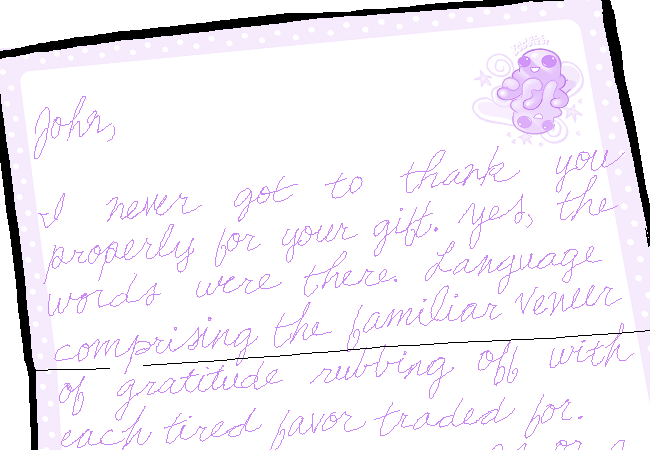 John,
I never got to thank you
properly for your gift. Yes, the
words were there. Language
comprising the familiar veneer
of gratitude rubbing off with
each tired favor traded for.
or a